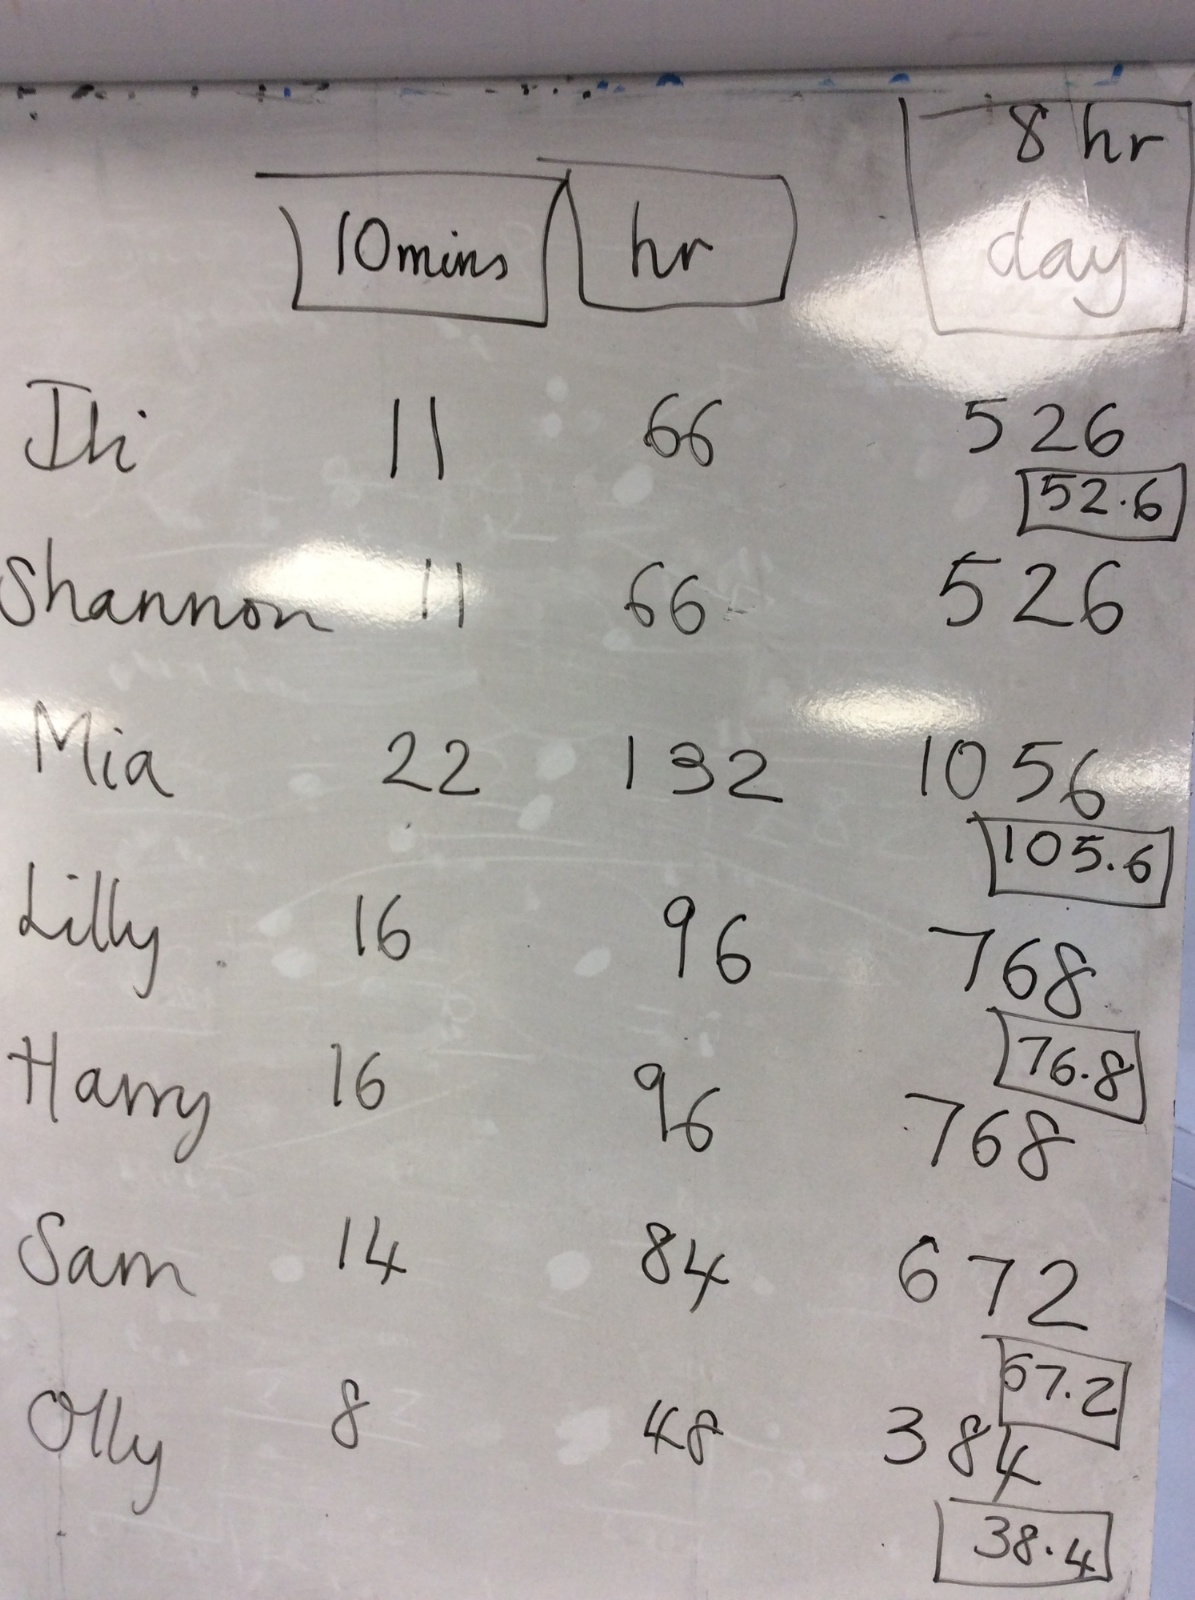 8 hr
10mins hr day
Ili 11 66 526
52.6
Shannon 11 66 526
Mia 22 132 1056
105.6
Lilly 16 96 768
76.8
Harry 16 96 768
Sam 14 84 672
67.2
Olly 8 48 384
38.4